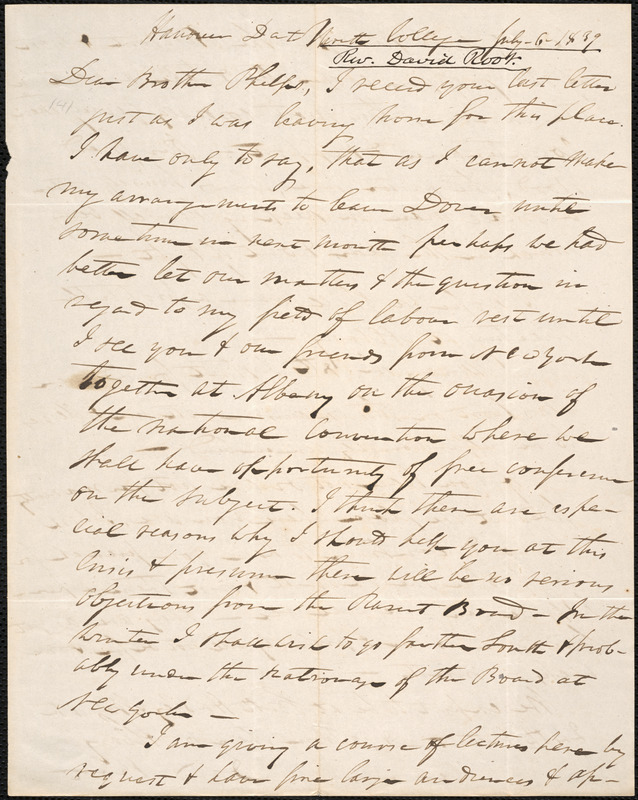 Hanover Dartmouth College July 6 1839
Rev. David Root.
Dear Brother Phelps, I rec'd your last letter
141
just as I was leaving home for this place.
I have only to say, that as I cannot make
my arrangements to leave Dover until
sometime in next month perhaps we had
better let our matters & the question in
regard to my field of labour rest until
I see you & our friends from New York
together at Albany on the occasion of
the national Convention where we
shall have opportunity of free conference
on the subject. I think there are espe-
cial reasons why I should help you at this
crisis & presume there will be no serious
objections from the Parent Board - In the
winter I shall wish to go further South & prob-
ably under the patronage of the Board at
New York -
I am giving a course of lectures here by
request & have fine large audiences & ap-